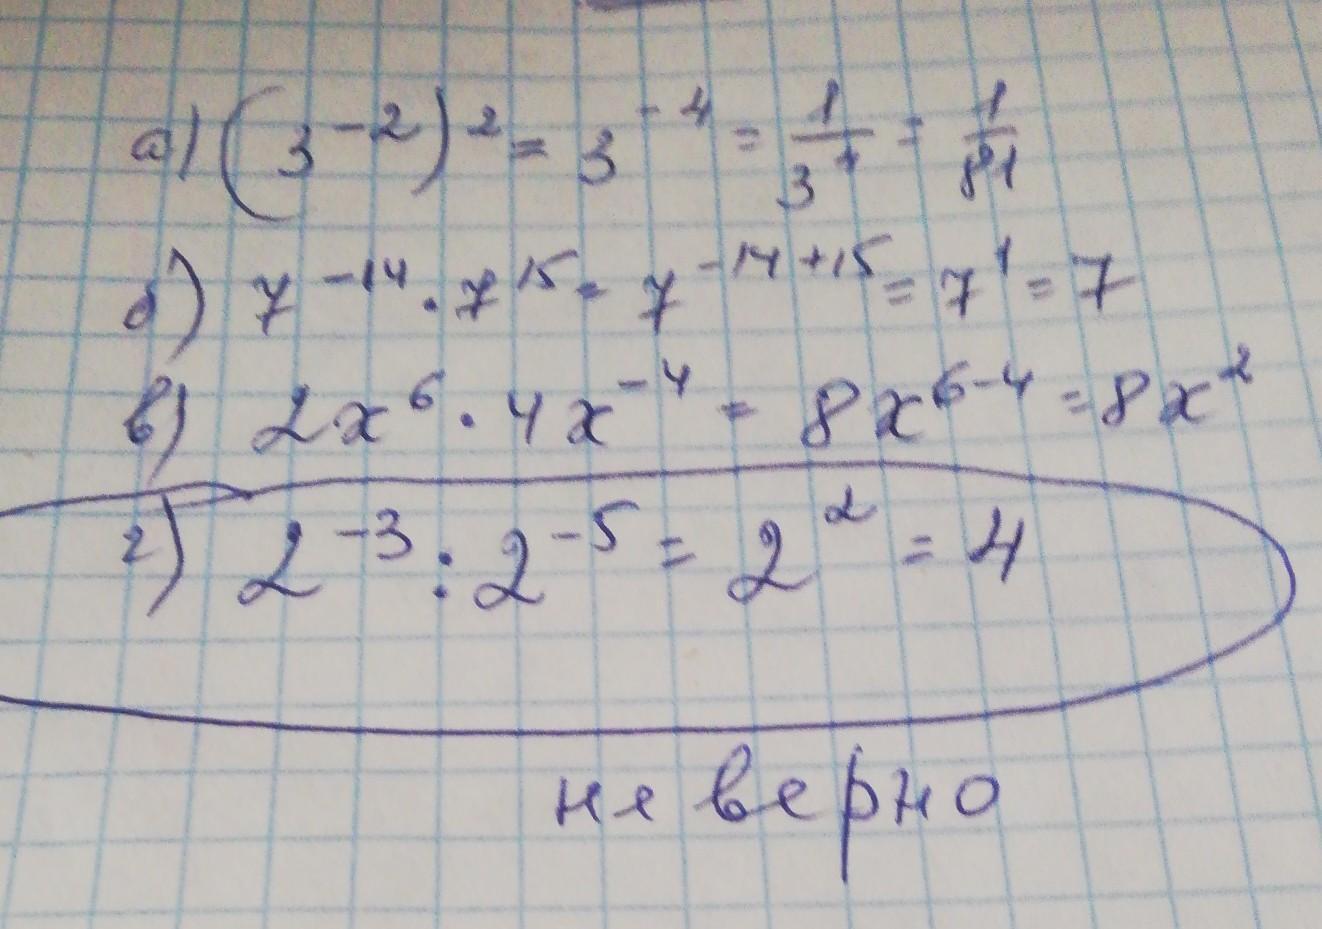 а) (3⁻²)² = 3⁻⁴ = 1/3⁴ = 1/81
б) 7⁻¹⁴ · 7¹⁵ = 7⁻¹⁴⁺¹⁵ = 7¹ = 7
в) 2x⁶ · 4x⁻⁴ = 8x⁶⁻⁴ = 8x²
г) 2⁻³ : 2⁻⁵ = 2² = 4
не верно